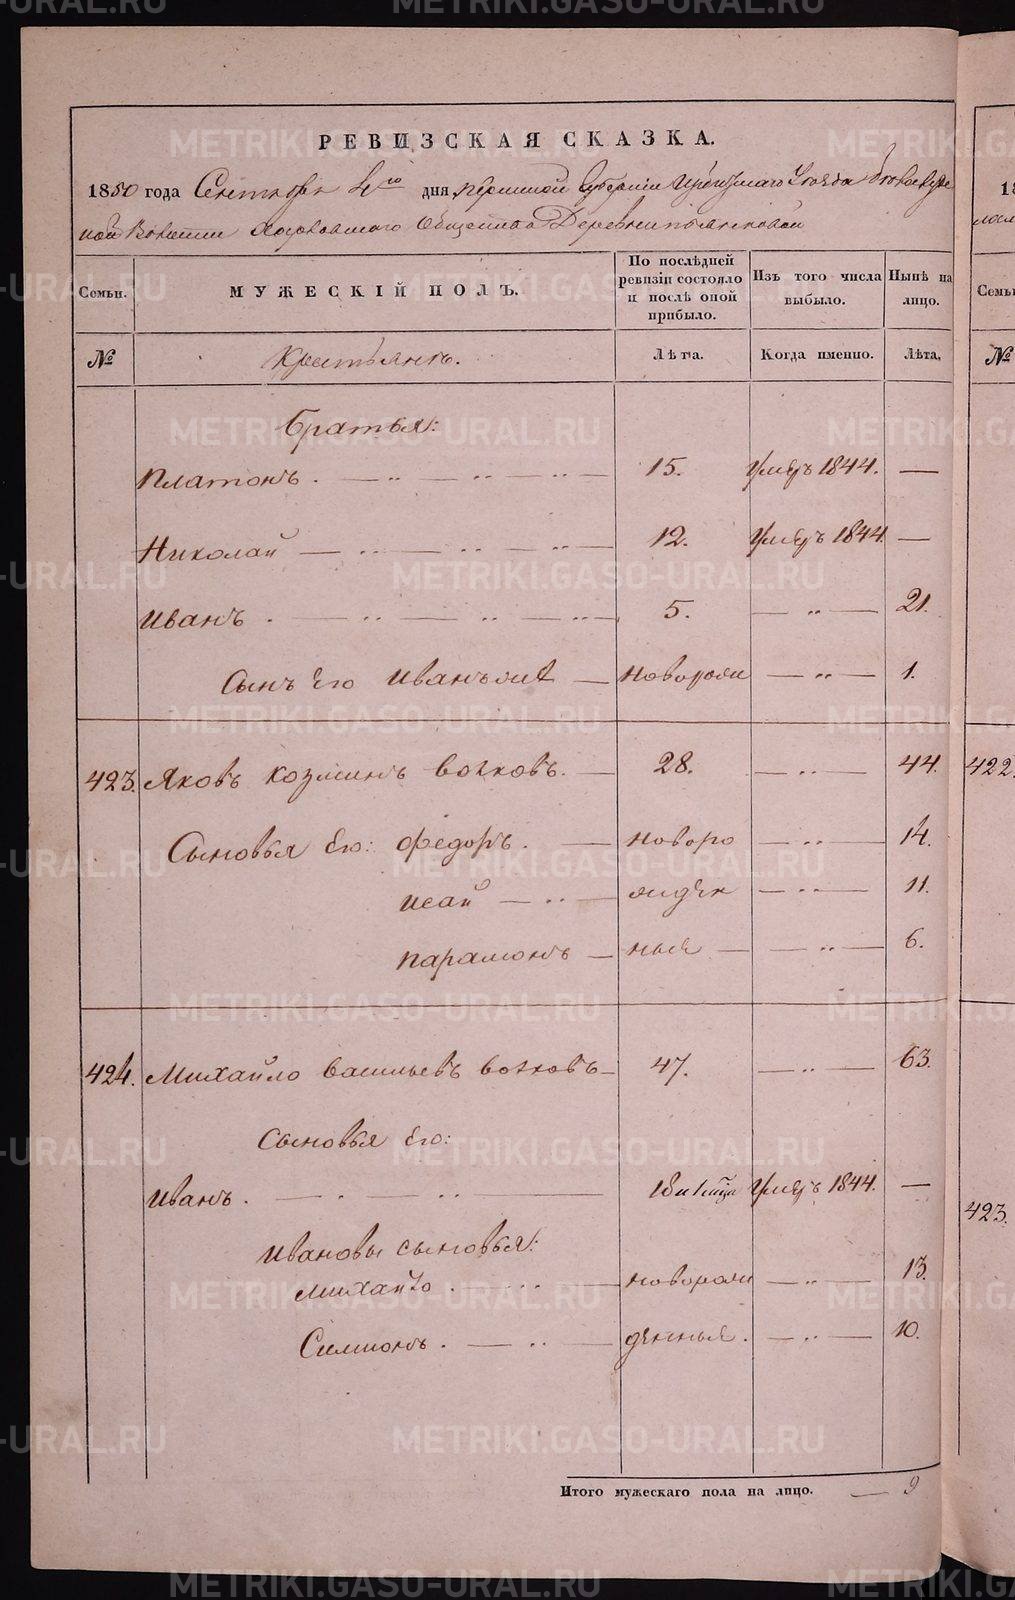 METRIKI.GASO-URAL.RU
РЕВИЗСКАЯ СКАЗКА.
1850 года Сентября 4го дня Пермской Губернии Ирбитскаго Уезда
Волости Общества Деревни
Семьи.
МУЖЕСКІЙ ПОЛЪ.
По послѣдней ревизіи состояло и послѣ оной прибыло.
Изъ того числа выбыло.
Нынѣ на лицо.
№
Крестьянъ.
Лѣта.
Когда именно.
Лѣта.
Братья:
Платонъ. 15. Умеръ 1844. —
Николай 12. Умеръ 1844 —
Иванъ. 5. — 21.
Сынъ Его — новорож — 1.
423. Яковъ Козминъ Волковъ. — 28. — 44.
Сыновья Его: Федоръ. — новоро — 14.
Исай — жден — 11.
Парамонъ — ные — 6.
424. Михайло Васильевъ Волковъ — 47. — 63.
Сыновья Его:
Иванъ. Умеръ 1844. —
Ивановы сыновья:
Михайло. новорож — 13.
Симионъ. денные. — 10.
Итого мужескаго пола на лицо. — 9
18
Семьи
№
422.
423.